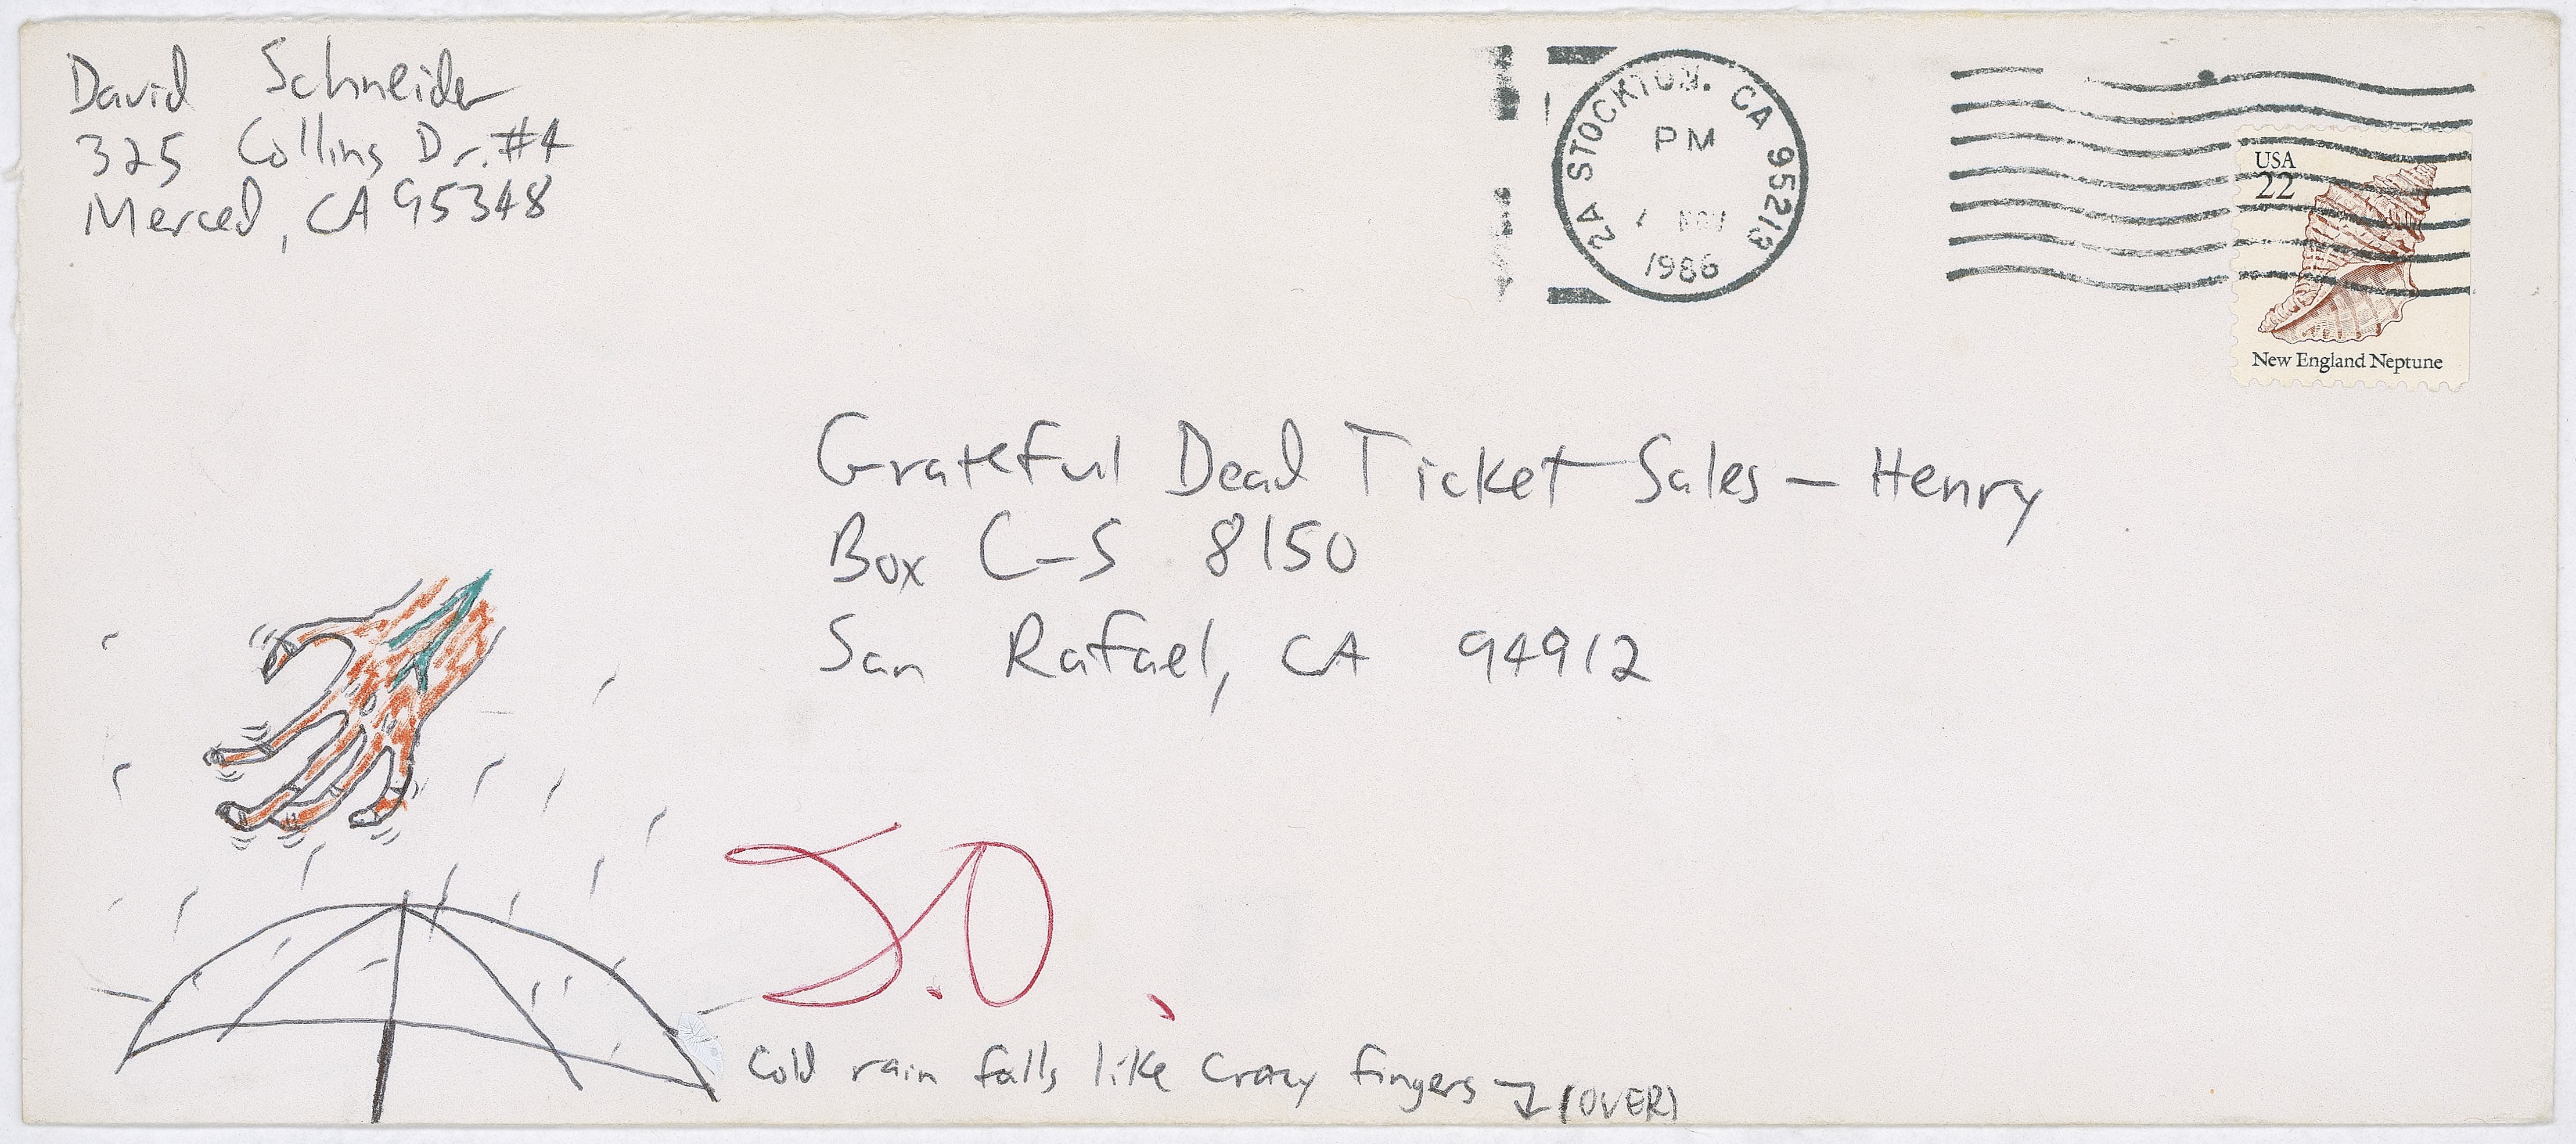 David Schneider
325 Collins Dr. #4
Merced, CA 95348
2A STOCKTON. CA 95213
PM
NOV
1986
USA
22
New England Neptune
Grateful Dead Ticket Sales - Henry
Box C-S 8150
San Rafael, CA 94912
J.O.
Cold rain falls like crazy fingers → (OVER)